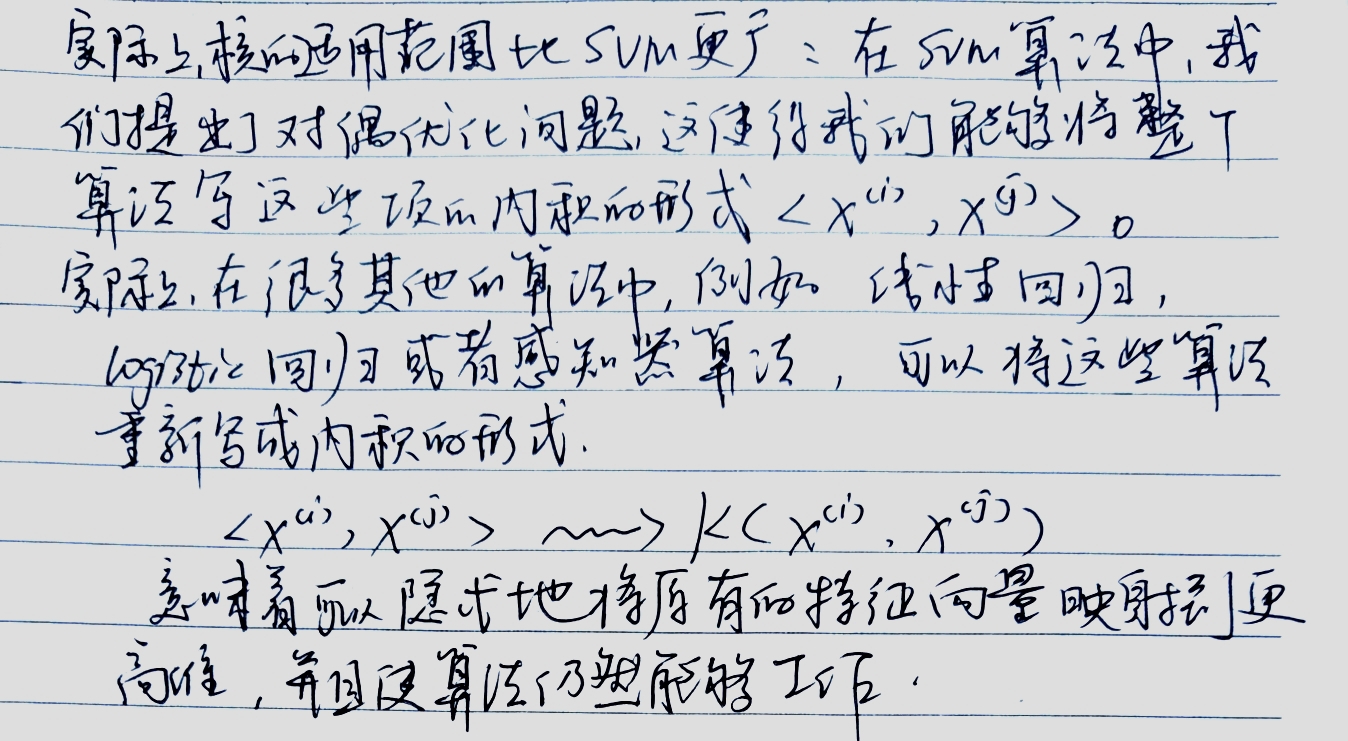 实际上,核的适用范围比SVM更广:在SVM算法中,我
们提出了对偶优化问题,这使得我们能够将整个
算法写这些项的内积的形式<x^(i), x^(j)>。
实际上,在很多其他的算法中,例如 线性回归,
logistic回归或者感知器算法,可以将这些算法
重新写成内积的形式.
<x^(i), x^(j)> ⟿ K(x^(i), x^(j))
意味着可以隐式地将原有的特征向量映射到更
高维,并且使算法仍然能够工作.